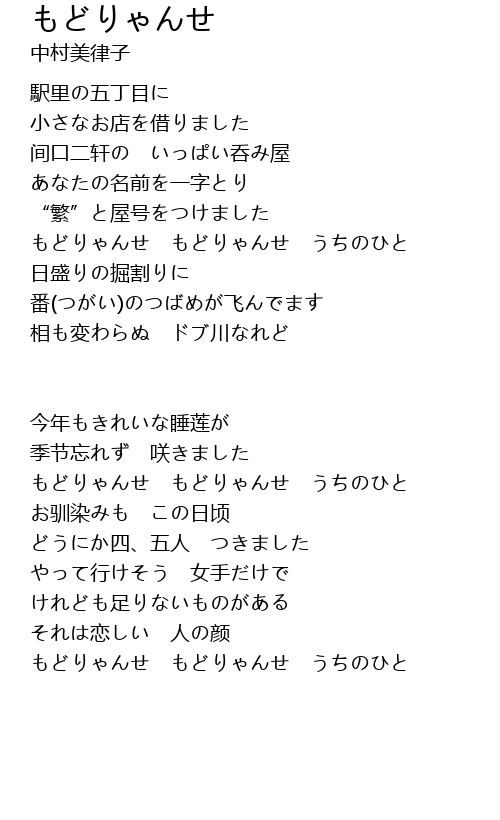 もどりゃんせ
中村美律子
駅里の五丁目に
小さなお店を借りました
间口二轩の　いっぱい呑み屋
あなたの名前を一字とり
“繁”と屋号をつけました
もどりゃんせ　もどりゃんせ　うちのひと
日盛りの掘割りに
番(つがい)のつばめが飞んでます
相も変わらぬ　ドブ川なれど
今年もきれいな睡莲が
季节忘れず　咲きました
もどりゃんせ　もどりゃんせ　うちのひと
お驯染みも　この日顷
どうにか四、五人　つきました
やって行けそう　女手だけで
けれども足りないものがある
それは恋しい　人の颜
もどりゃんせ　もどりゃんせ　うちのひと